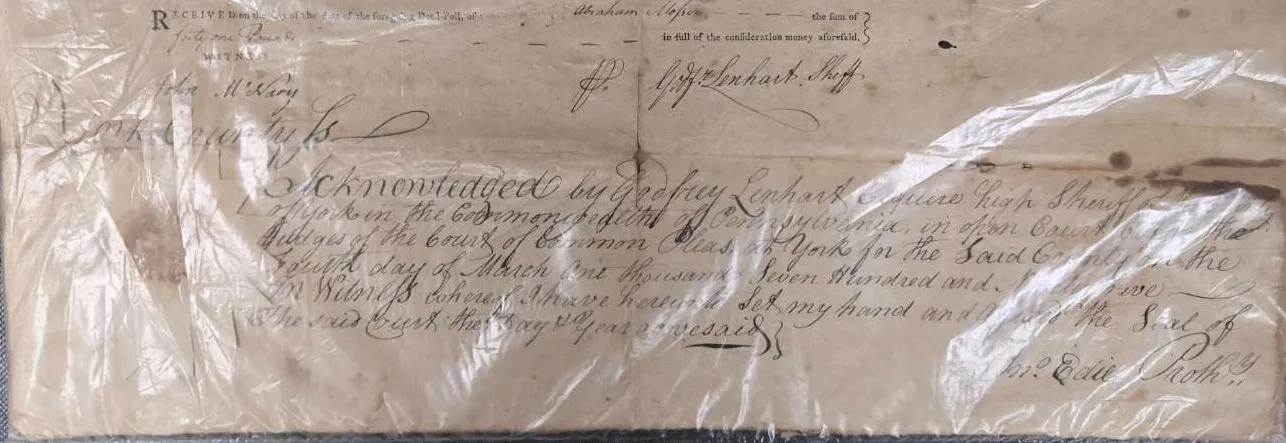 RECEIVED on the day of the date of the foregoing Deed-Poll, of Abraham Moser the sum of
forty one Pounds in full of the consideration money aforesaid,
WITNESS
John McNary Godfy. Lenhart Sheff
York County Ss
Acknowledged by Godfrey Lenhart Esquire high Sheriff
of York in the Commonwealth of Pennsylvania, in open Court before the
Judges of the Court of Common Pleas, at York for the Said County on the
Fourth day of March One thousand Seven Hundred and Ninety five
In Witness whereof I have hereunto Set my hand and affixed the Seal of
The said Court the Day & Year abovesaid
Jno. Edie Prothy